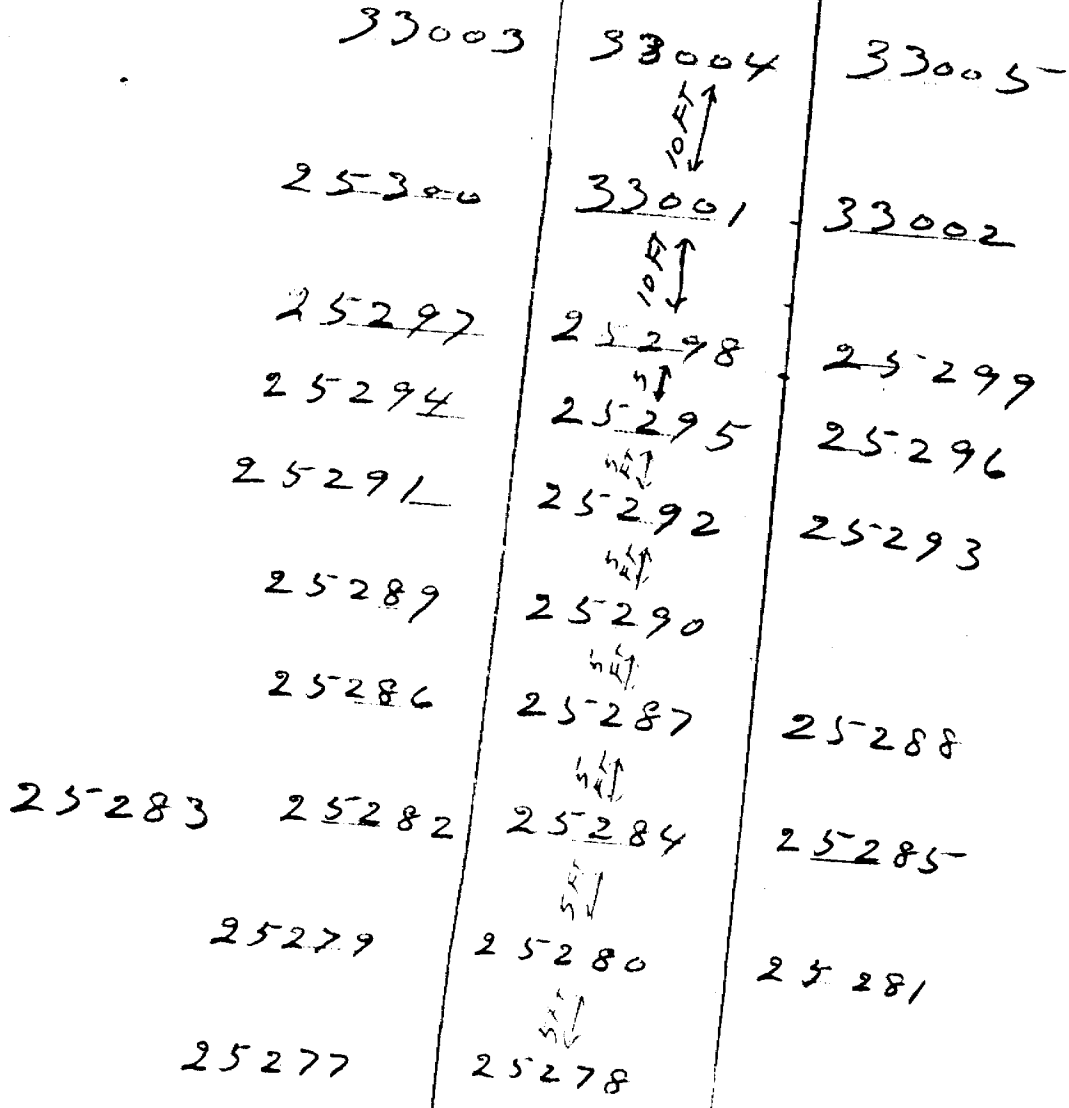 33003 33004 33005
10 FT
25300 33001 33002
10 FT
25297 25298 25299
5
25294 25295 25296
5 FT
25291 25292 25293
5 FT
25289 25290
5 FT
25286 25287 25288
5 FT
25283 25282 25284 25285
5 FT
25279 25280 25281
5 FT
25277 25278